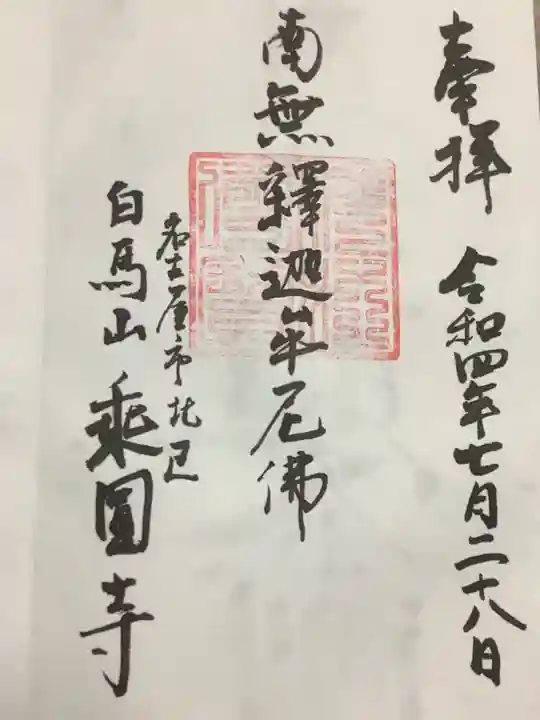 奉拝
令和四年七月二十八日
南無釋迦牟尼佛
名古屋市北区
白馬山乘圓寺